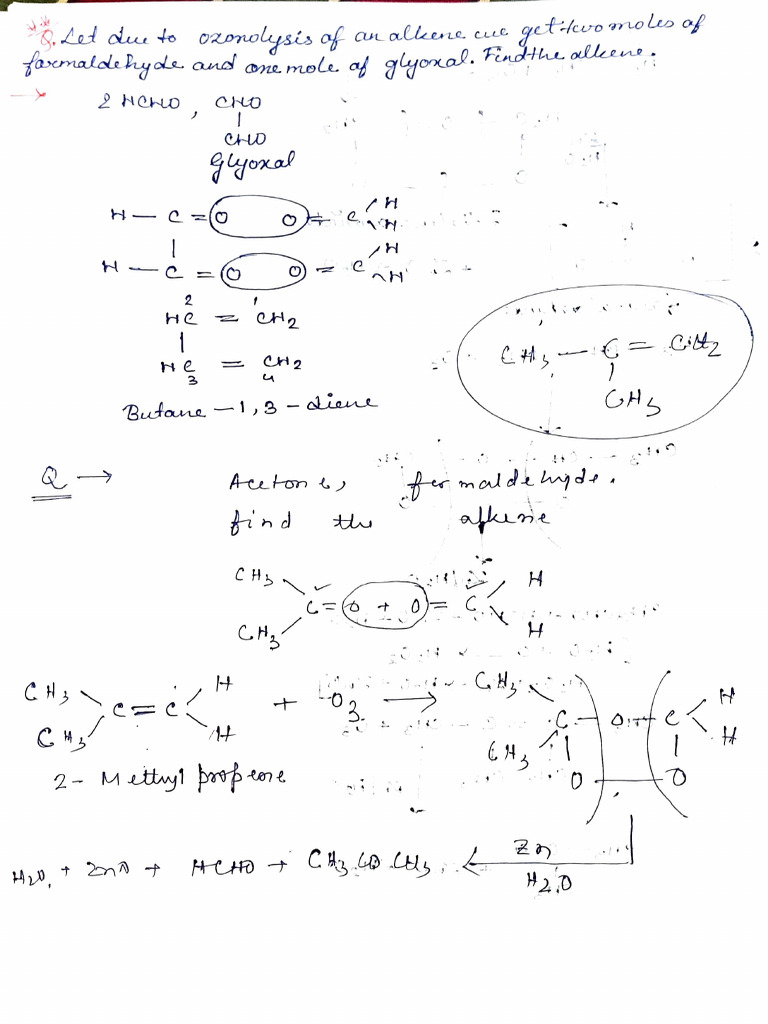 Q. Let due to ozonolysis of an alkene we get two moles of
formaldehyde and one mole of glyoxal. Find the alkene.
→ 2 HCHO, CHO
|
CHO
Glyoxal
H — C = O O = C H
H
|
H — C = O O = C H
H
2 1
HC = CH2
|
HC = CH2
3 4
Butane - 1, 3 - diene
CH3 — C = CH2
|
CH3
Q → Acetone, formaldehyde.
find the alkene
CH3 H
C = O + O = C
CH3 H
CH3 H CH3 H
C = C + O3 → C — O — C
CH3 H CH3 | | H
O — O
2 - Methyl propene
Zn
H2O + ZnO + HCHO + CH3 CO CH3 ←
H2O